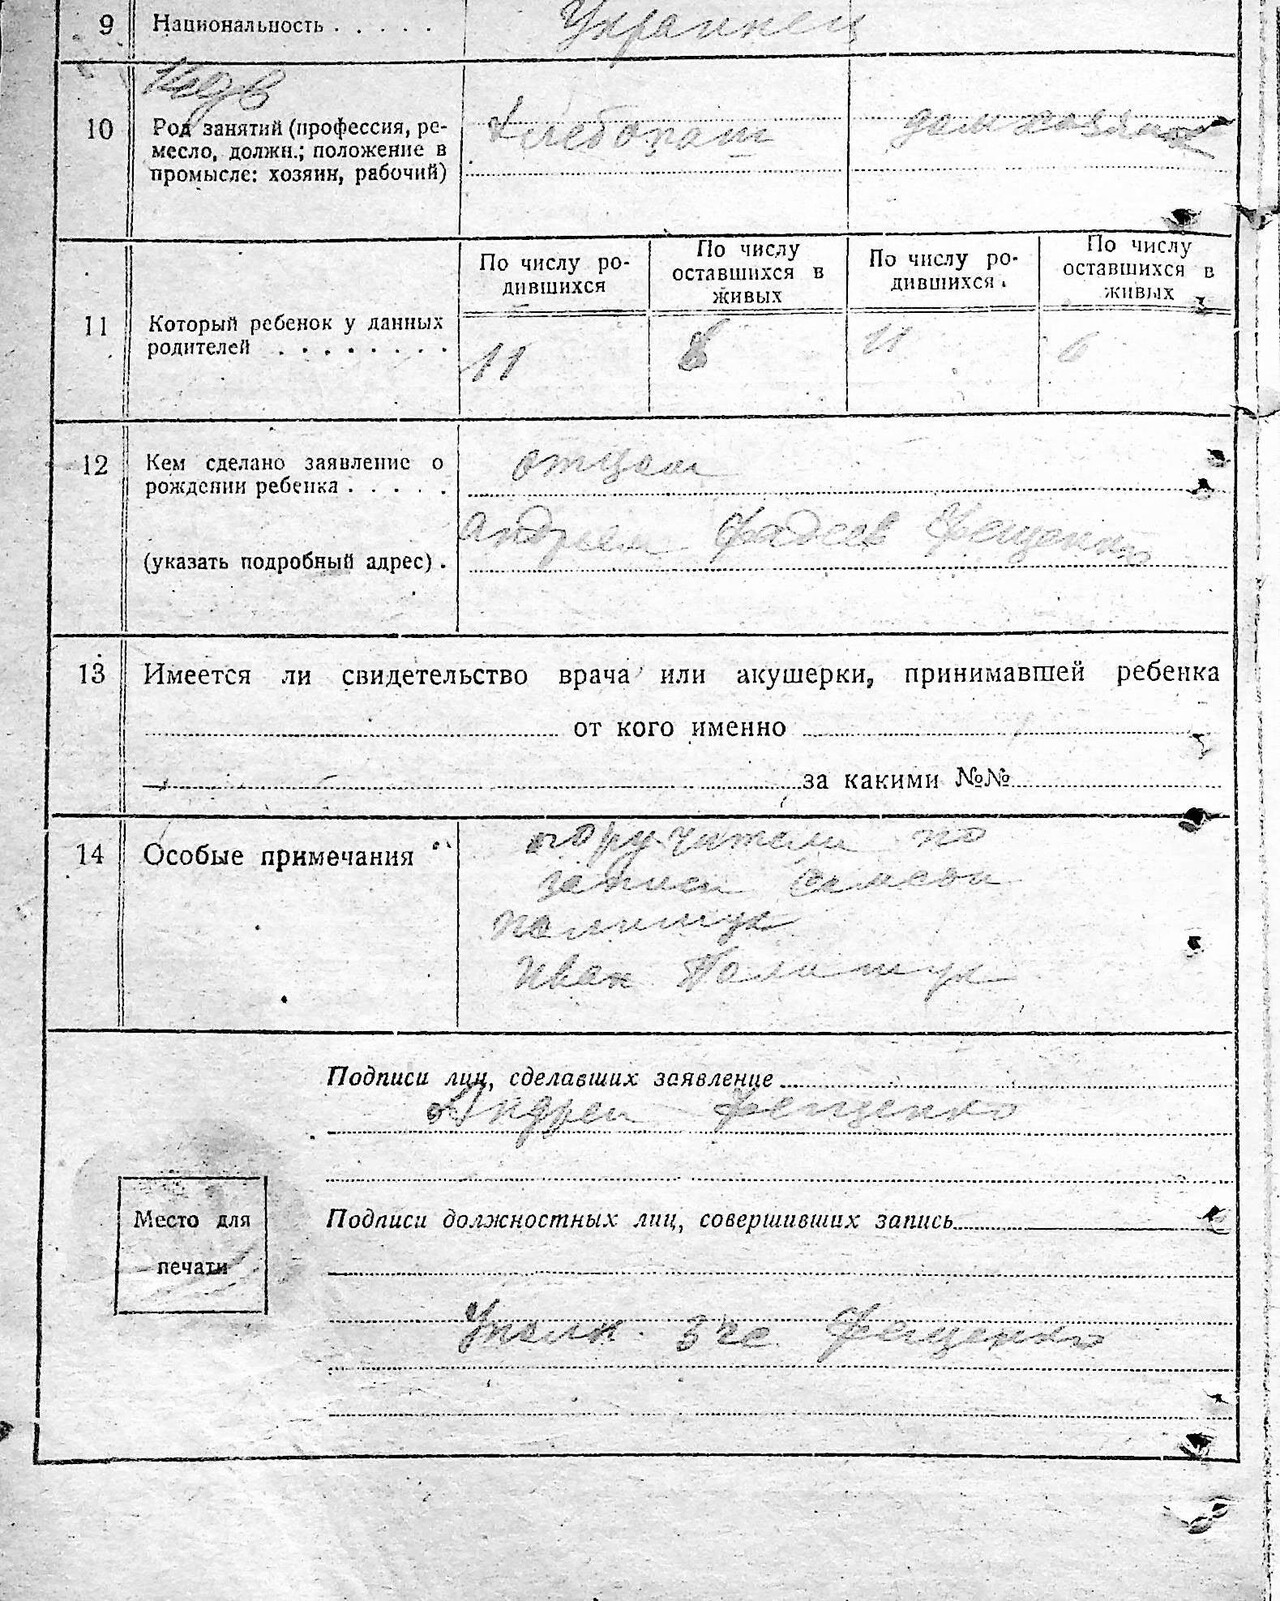 9 Национальность . . . . . Украинец
10 Род занятий (профессия, ре-
месло, должн.; положение в
промысле: хозяин, рабочий)
Хлебопаш домхозяйк
11 Который ребенок у данных
родителей . . . . . . . .
По числу ро-
дившихся
По числу
оставшихся в
живых
По числу ро-
дившихся.
По числу
оставшихся в
живых
11 8 11 6
12 Кем сделано заявление о
рождении ребенка . . . . .
(указать подробный адрес) .
отцом
Андреем Фадеев Фещенко
13 Имеется ли свидетельство врача или акушерки, принимавшей ребенка
от кого именно
за какими №№
14 Особые примечания
поручители по
записи Самсон
Полищук
Иван Полищук
Подписи лиц, сделавших заявление
Андрей Фещенко
Место для
печати
Подписи должностных лиц, совершивших запись
Фещенко